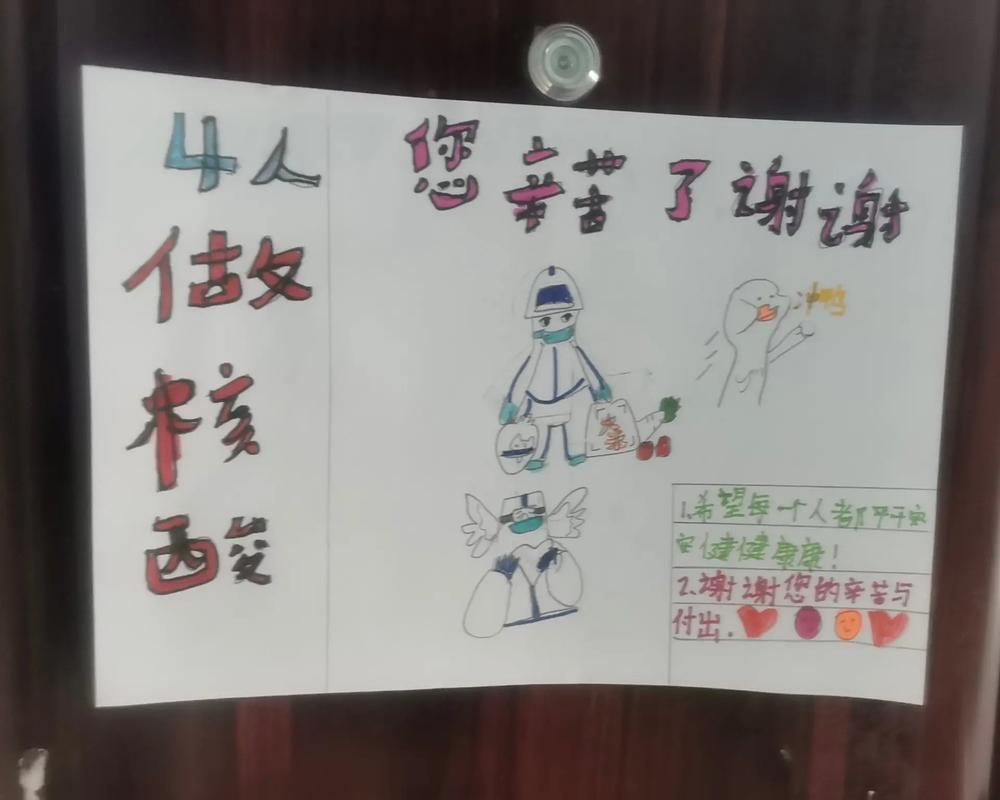 4人
做
核
酸
您辛苦了谢谢
冲鸭
大米
1.希望每一个人都平平安
安健健康康!
2.谢谢您的辛苦与
付出.